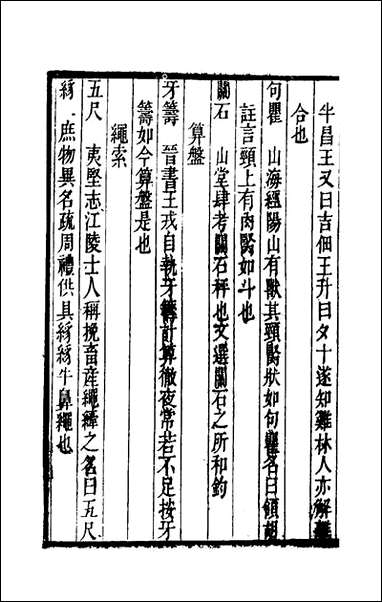 半昌王又曰吉佃王升曰夕十遂知雞林人亦解
合也
句瞿　山海經陽山有獸其頸腎狀如句瞿名曰領胡
註言頸上有肉腎如斗也
關石　山堂肆考關石秤也文選關石之所和鈞
算盤
牙籌　晉書王戎自執牙籌計算徹夜常若不足按牙
籌如今算盤是也
繩索
五尺　夷堅志江陵士人稱挽畜産繩縴之名曰五尺
絼　庶物異名疏周禮供具絼絼牛鼻繩也